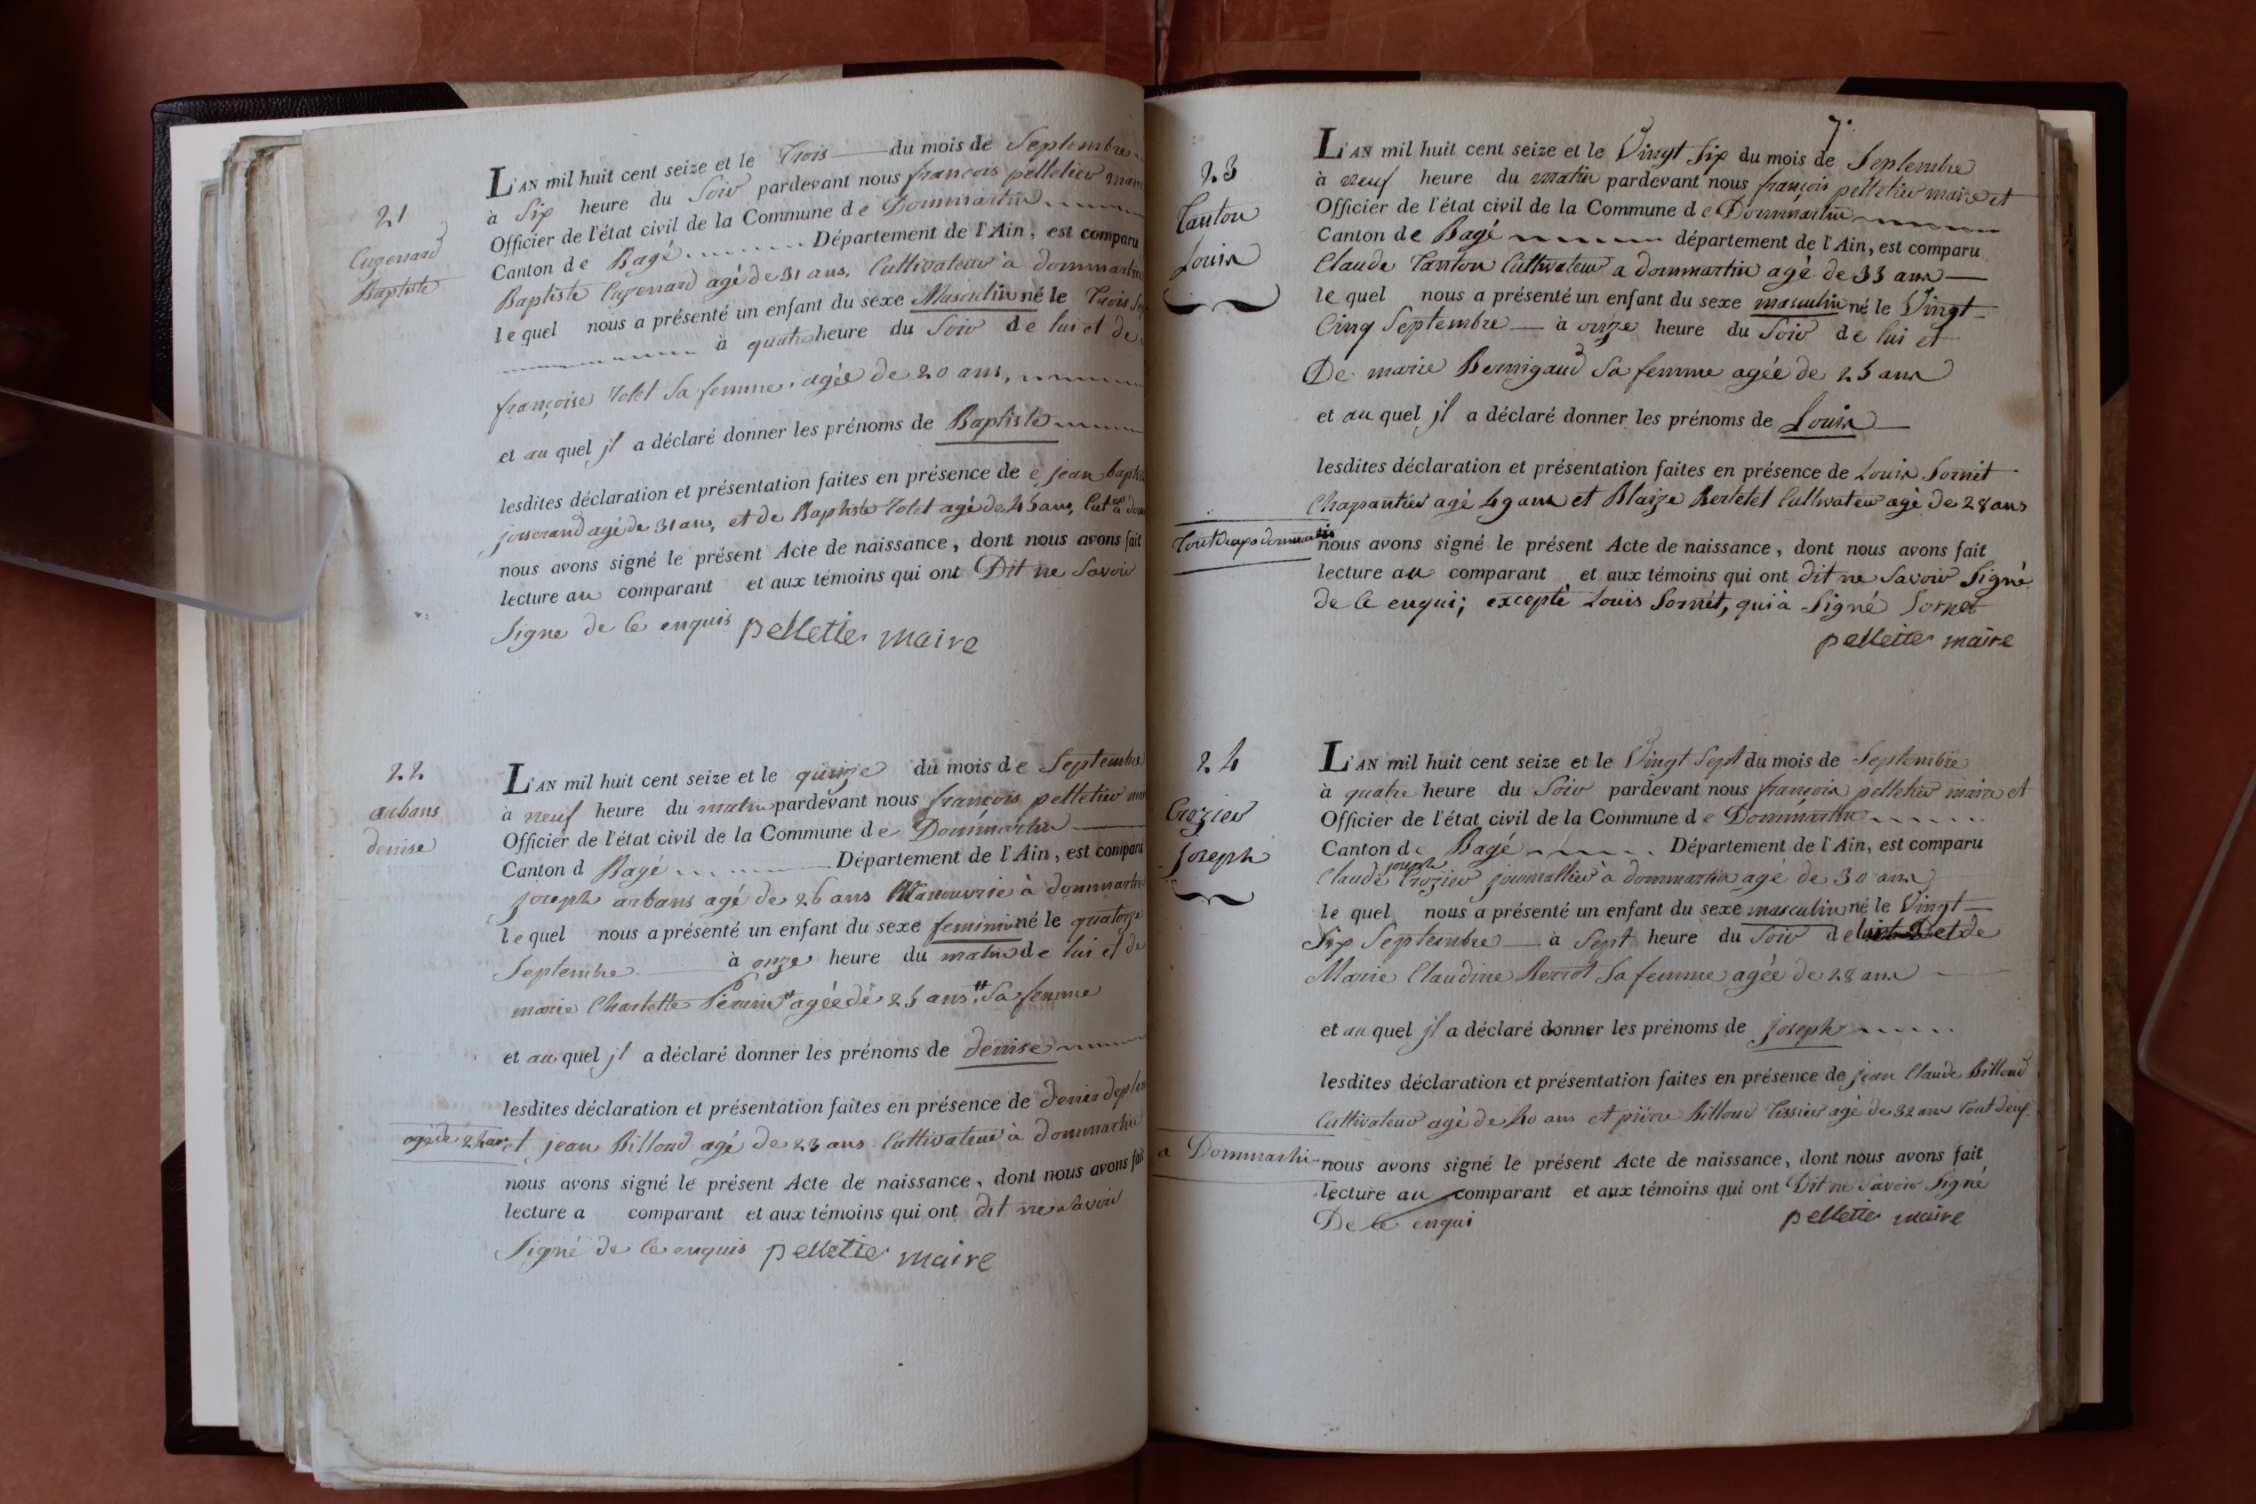 21
Cugenard
Baptiste
L'AN mil huit cent seize et le Trois du mois de Septembre
à Six heure du Soir pardevant nous françois pelletier maire
Officier de l'état civil de la Commune de Dommartin
Canton de Bagé Département de l'Ain, est comparu
Baptiste Cugenard agé de 31 ans, Cultivateur à dommartin
lequel nous a présenté un enfant du sexe Masculin né le Trois
à quatre heure du Soir de lui et de
françoise Tolet Sa femme, agée de 20 ans,
et au quel jl a déclaré donner les prénoms de Baptiste
lesdites déclaration et présentation faites en présence de jean
josserand agé de 31 ans, et de Baptiste Tolet agé de 45 ans,
nous avons signé le présent Acte de naissance, dont nous avons fait
lecture au comparant et aux témoins qui ont Dit ne Savoir
Signe de Ce enquis pelletier maire
22
arbans
denise
L'AN mil huit cent seize et le quinze du mois de Septembre
à neuf heure du matin pardevant nous françois pelletier
Officier de l'état civil de la Commune de Dommartin
Canton d Bagé Département de l'Ain, est comparu
joseph arbans agé de 26 ans Manouvrie à dommartin
lequel nous a présenté un enfant du sexe feminin né le quatorze
Septembre à onze heure du matin de lui et de
marie Charlotte agée de 25 ans, Sa femme
et au quel jl a déclaré donner les prénoms de denise
lesdites déclaration et présentation faites en présence de denis
agé de ans et jean Billoud agé de 23 ans Cultivateur à dommartin
nous avons signé le présent Acte de naissance, dont nous avons fait
lecture a comparant et aux témoins qui ont dit ne Savoir
Signé de Ce enquis pelletier maire
7.
23
Tanton
Louis
L'AN mil huit cent seize et le Vingt Six du mois de Septembre
à neuf heure du matin pardevant nous françois pelletier maire et
Officier de l'état civil de la Commune de Dommartin
Canton de Bagé département de l'Ain, est comparu
Claude Tanton Cultivateur a dommartin agé de 33 ans
le quel nous a présenté un enfant du sexe masculin né le Vingt
Cinq Septembre à onze heure du Soir de lui et
De marie Bernigaud Sa femme agée de 25 ans
et au quel jl a déclaré donner les prénoms de Louis
lesdites déclaration et présentation faites en présence de Louis Sornet
Chapantier agé 49 ans et Blaize Bertetet Cultivateur agé de 28 ans
nous avons signé le présent Acte de naissance, dont nous avons fait
lecture au comparant et aux témoins qui ont dit ne Savoir Signé
de Ce enqui; excepté Louis Sornet, qui à Signé Sornet
pelletier maire
24
Crozier
Joseph
L'AN mil huit cent seize et le Vingt Sept du mois de Septembre
à quatre heure du Soir pardevant nous françois pelletier maire et
Officier de l'état civil de la Commune de Dommartin
Canton de Bagé Département de l'Ain, est comparu
Claude joseph Crozier journallier à dommartin agé de 30 ans
le quel nous a présenté un enfant du sexe masculin né le Vingt
Six Septembre à Sept heure du Soir de lui et de
Marie Claudine Berrot Sa femme agée de 28 ans
et au quel jl a déclaré donner les prénoms de joseph
lesdites déclaration et présentation faites en présence de jean Claude Billoud
Cultivateur agé de 40 ans et pierre Billoud Tissier agé de 32 ans tout deux
a Dommartin nous avons signé le présent Acte de naissance, dont nous avons fait
lecture au comparant et aux témoins qui ont Dit ne Savoir Signé
De Ce enqui pelletier maire